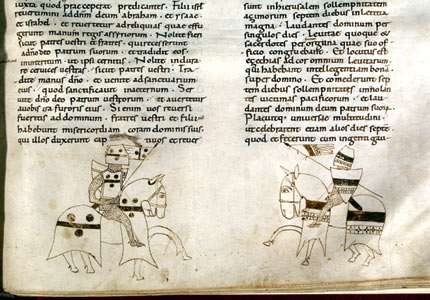 iuxta quod rex preceperat predicantes. Filii isrl
reuertimini addnm deum abraham. et ysaac
et israhel. et reuertetur adreliquias quae effu
gerunt manum regis assyriorum. Nolite fieri
sicut patres vestri et fratres. qui recesserunt
adno deo patrum suorum. et tradidit eos
ininteritum ut ipsi cernitis. Nolite indura
re cervices vestras. sicut patres vestri. Tra
dite manus dno. et venite adsanctuarium
eius. quod sanctificavit inaeternum. Ser
vite dno deo patrum vestrorum. et avertetur
avobis ira furoris eius. Si enim vos reversi
fueritis ad dominum. fratres vestri et filii
habebunt misericordiam coram dominis suis
qui illos duxerunt cap tivos et rever
sunt inhierusalem sollempnitatem
azimorum septem diebus in letitia
magna. Laudantes dominum per
singulos dies. Levitae quoque et
sacerdotes per organa quae suo of
ficio congruebant. Et locutus est
ezechias ad cor omnium levitarum.
qui habebant intellegentiam bonam
super domino. Et comederunt sep
tem diebus sollempnitatis immolan
tes victimas pacificorum. et lau
dantes dominum deum patrum suorum.
Placuitque universae multitudini
ut celebrarent etiam alios dies septem
quod et fecerunt cum ingenti gau